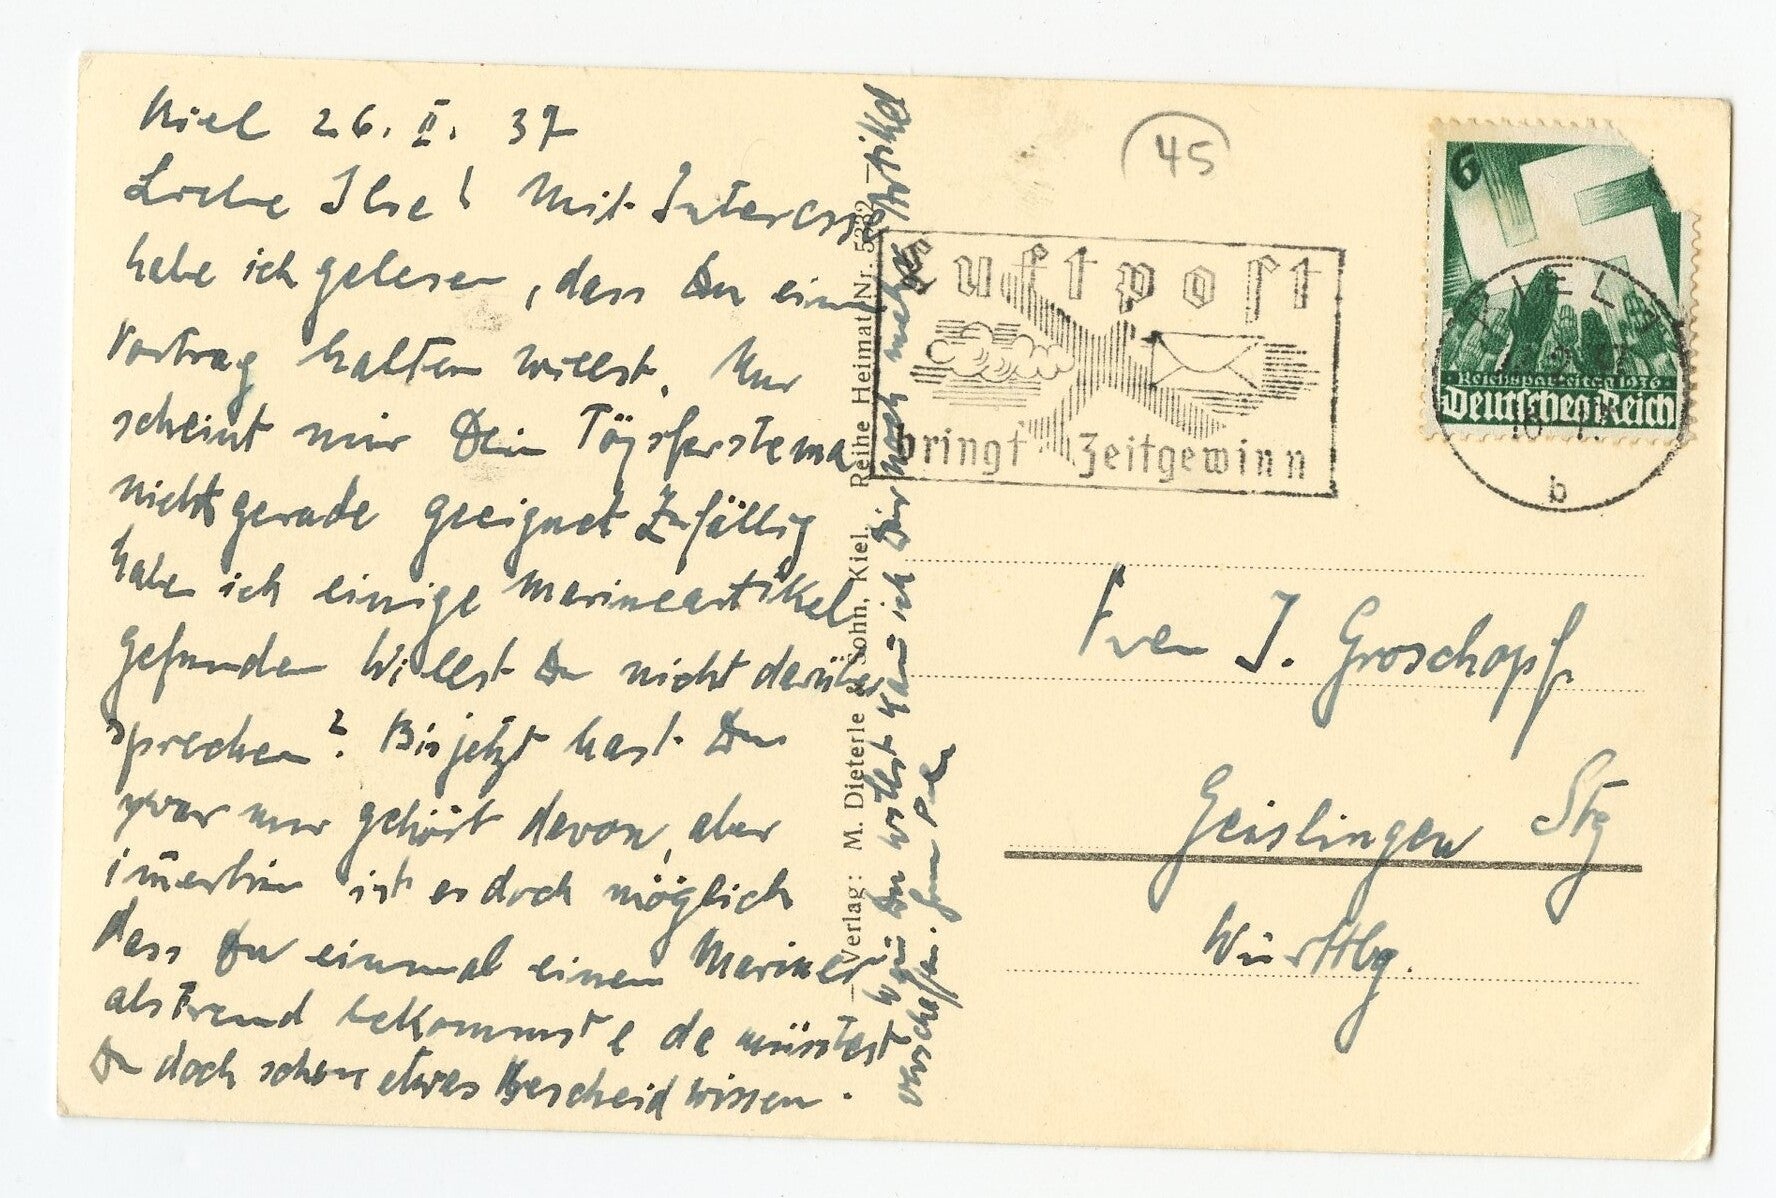 Kiel 26. II. 37
Liebe Ilse! Mit Interesse
habe ich gelesen, dass Du einen
Vortrag halten willst. Nur
scheint mir Dein
nicht gerade geeignet Zufällig
habe ich einige Marineartikel
gefunden Willst Du nicht darüber
sprechen? Bis jetzt hast Du
zwar nur gehört davon, aber
im̄erhin ist es doch möglich
dass Du einmal einen Mariner
als Freund bekommst & da müsstest
Du doch schon etwas Bescheid wissen.
Wen̄ Du willst kan̄ ich Dir noch mehr Artikel
verschaffen.
Verlag: M. Dieterle & Sohn, Kiel. Reihe Heimat Nr. 5332
45
Luftpost
bringt Zeitgewinn
6
Reichsparteitag 1936
Deutsches Reich
KIEL 1
b
J. Groschopf
Geislingen Stg
Württbg.